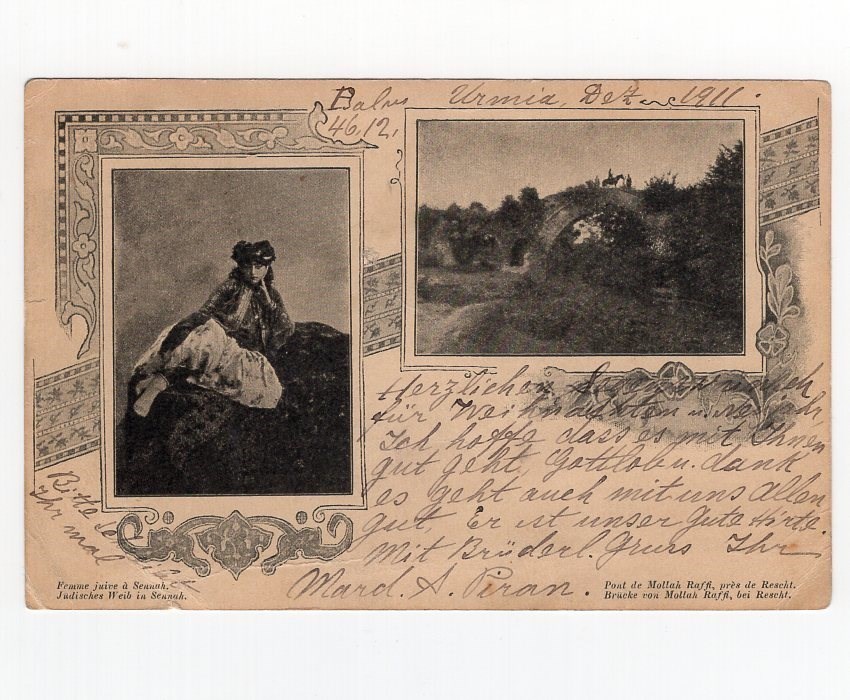 Urmia, Dez. 1911.
46,12,
Herzlichen Segenswunsch
für Weihnachten u. neujahr,
Ich hoffe dass es mit Ihnen
gut geht, Gottlob u. dank
es geht auch mit uns allen
gut, Er ist unser gute Hirte.
Mit Brüderl. Gruss Ihr
Mard. S. Piran.
Bitte
Ihr mal
Femme juive à Sennah.
Judisches Weib in Sennah.
Pont de Mollah Raffi, près de Rescht.
Brücke von Mollah Raffi, bei Rescht.